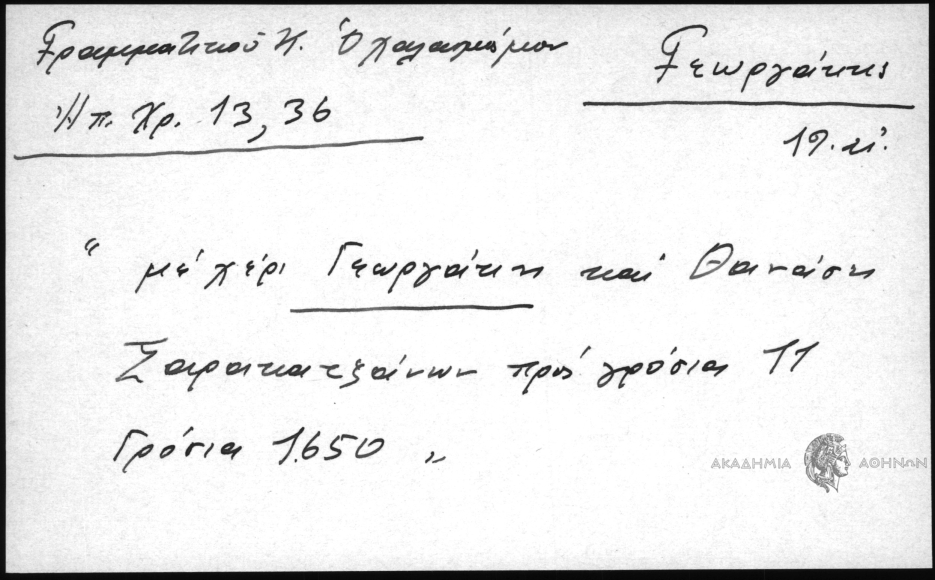 Γραμματικού Κ.
Ἠπ. Χρ. 13, 36
Γεωργάκης
19. αἰ.
“ μέ χέρι Γεωργάκη καί Θανάση
Σαρακατζάνων πρός γρόσια 11
Γρόσια 1.650 „
ΑΚΑΔΗΜΙΑ ΑΘΗΝΩΝ